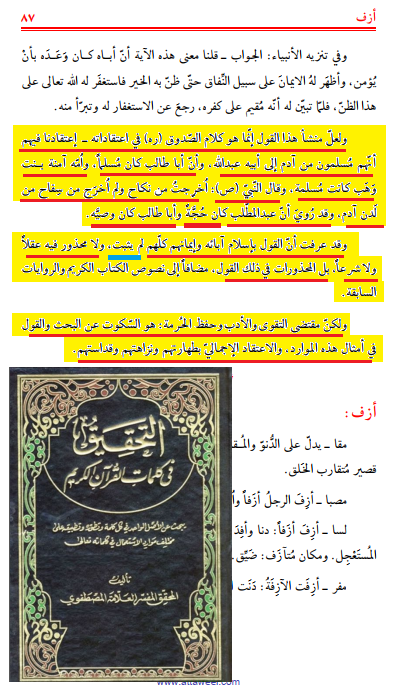 أزف ٨٧
وفي تنزيه الأنبياء: الجواب ـ قلنا معنى هذه الآية أنّ أباه كان وَعَدَه بأنْ
يُؤمن، وأظهَر لهُ الايمانَ على سبيل النِّفاق حتّى ظنّ به الخير فاستغفَر له الله تعالى على
هذا الظّن، فلمّا تبيّن له أنّه مُقيم على كفره، رجعَ عن الاستغفار له وتبرّأ منه.
ولعلّ منشأ هذا القول إنّما هو كلام الصّدوق (ره) في اعتقاداته ـ إعتقادنا فيهم
أنّهم مُسلمون من آدم إلى أبيه عبدالله، وأنّ أبا طالب كان مُسلماً، وأمّه آمنة بنت
وَهَب كانت مُسلمة، وقال النّبيّ (ص): أخرجتُ من نكاح ولم أُخرَج من سِفاح من
لَدن آدم، وقد رُويَ أنّ عبدالمطّلب كان حُجّةً وأبا طالب كان وصيَّه.
وقد عرفت أنّ القول بإسلام آبائه وإيمانهم كلّهم لم يثبت، ولا محذور فيه عقلاً
ولا شرعاً، بل المحذورات في ذلك القول، مضافاً إلى نصوص الكتاب الكريم والروايات
السابقة.
ولكنّ مقتضى التقوى والأدب وحفظ الحُرمة: هو السّكوت عن البحث والقول
في أمثال هذه الموارد، والاعتقاد الإجماليّ بطهارتهم ونزاهتهم وقداستهم.
أزف:
مقا ـ يدلّ على الدُّنوّ والمُـقـ
قصير مُتقارب الخَلق.
مصبا ـ أزِفَ الرجلُ أزَفاً وأُ
لسا ـ أزِفَ أزَفاً: دنا وأفِدَ
المُستَعْجِل. ومكان مُتآزَف: ضَيِّق.
مفر ـ أزِفَت الآزِفَةُ: دَنَت ا
التحقيق
في كلمات القرآن الكريم
تأليف
المحقق المفسر العلامة المصطفوي
www.attaweel.com